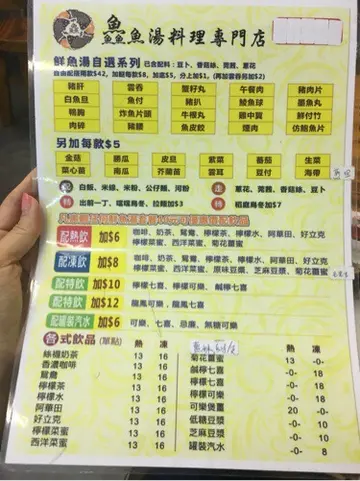 鱻魚魚湯料理專門店
鮮魚湯自選系列 已含配料：豆卜、香菇絲、莞茜、蔥花
自由配搭兩款$42，加配每款$8，加底$5，分上加$1，(再加雲吞另加$2)
豬肝 雲吞 蟹籽丸 午餐肉 豬肉片
白魚旦 魚付 豬扒 鯪魚球 墨魚丸
鴨胸 炸魚片頭 牛根丸 雞中翼 鮮付竹
肉碎 豬腰 魚皮餃 煙肉 仿鮑魚片
另加每款$5
金菇 勝瓜 皮旦 紫菜 番茄 生菜
菜心苗 南瓜 芥蘭苗 雲耳 豆付 海帶
白飯、米線、米粉、公仔麵、河粉 走 蔥花、莞茜、香菇絲、豆卜
轉 出前一丁、瑞瑤烏冬、拉麵加$3 轉 稻庭烏冬加$7
配熱飲 加$6 咖啡、奶茶、鴛鴦、檸檬茶、檸檬水、阿華田、好立克
檸檬菜蜜、西洋菜蜜、菊花薑蜜
配凍飲 加$8 咖啡、奶茶、鴛鴦、檸檬茶、檸檬水、阿華田、好立克
檸檬菜蜜、西洋菜蜜、原味豆漿、芝麻豆漿、菊花薑蜜
配特飲 加$10 檸檬可樂、檸檬七喜、鹹檸七喜
配特飲 加$12 龍鳳可樂、龍鳳七喜
配罐裝汽水 加$6 可樂、七喜、忌廉、無糖可樂
各式飲品 (單點) 熱 凍
絲襪奶茶 13 16
香濃咖啡 13 16
鴛鴦 13 16
檸檬茶 13 16
檸檬水 13 16
阿華田 13 16
好立克 13 16
檸檬菜蜜 13 16
西洋菜蜜 13 16
熱 凍
菊花薑蜜 13 -0-
鹹檸七喜 -0- 18
檸檬七喜 -0- 18
檸檬可樂 -0- 18
可樂煲薑 20 -0-
低糖豆漿 -0- 10
芝麻豆漿 -0- 10
罐裝汽水 -0- 8